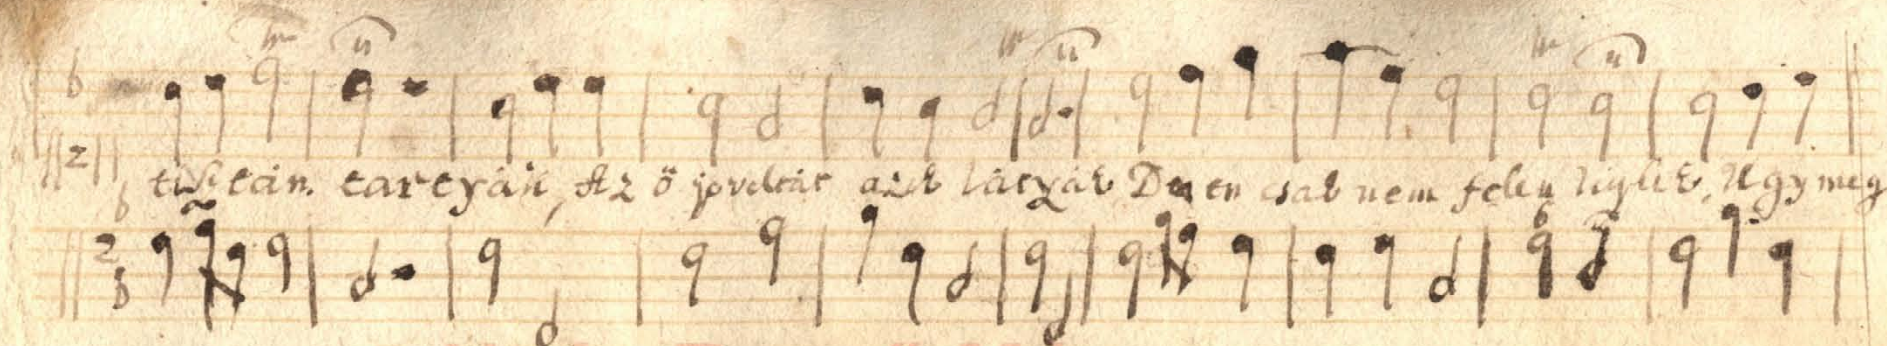 tisztán tartyák, Az ö jovoltát azok látyák De en csak nem felen ligük, Ugy meg